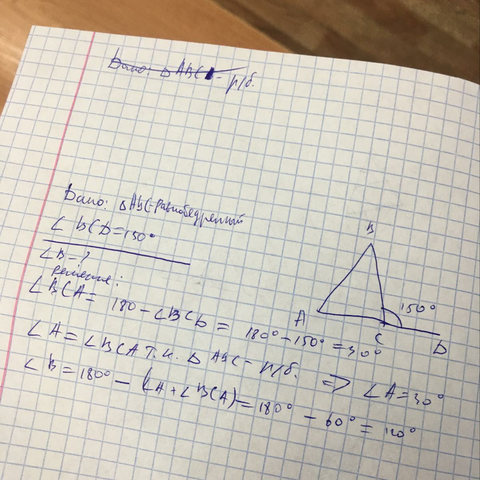 Дано: △ABC - р/б.
Дано: △ABC-равнобедренный
∠ BCD=150°
∠B=?
решение:
∠BCA= 180-∠BCD= 180°-150°=30°
∠A=∠BCA т.к. △ABC- р/б. => ∠A=30°
∠B=180°-(∠A+∠BCA)=180°-60°=120°
B
A
C
D
150°